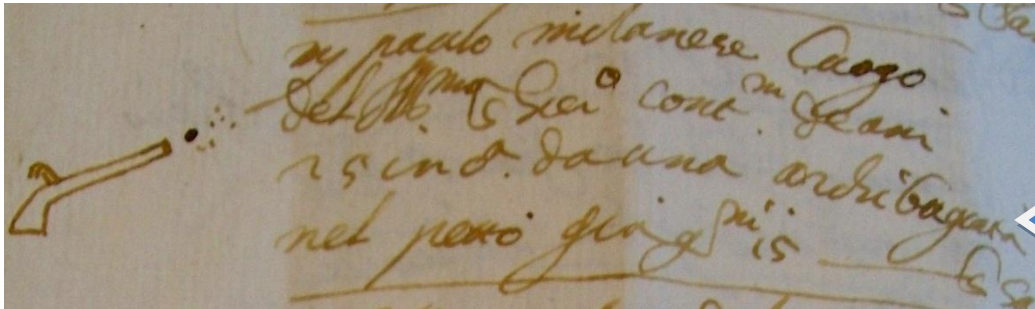 m paulo milanese Cuogo
del Ill^mo S Gier^o cont^ni de ani
25 in c.^a da una archibugiata
nel petto gia g^ni 15